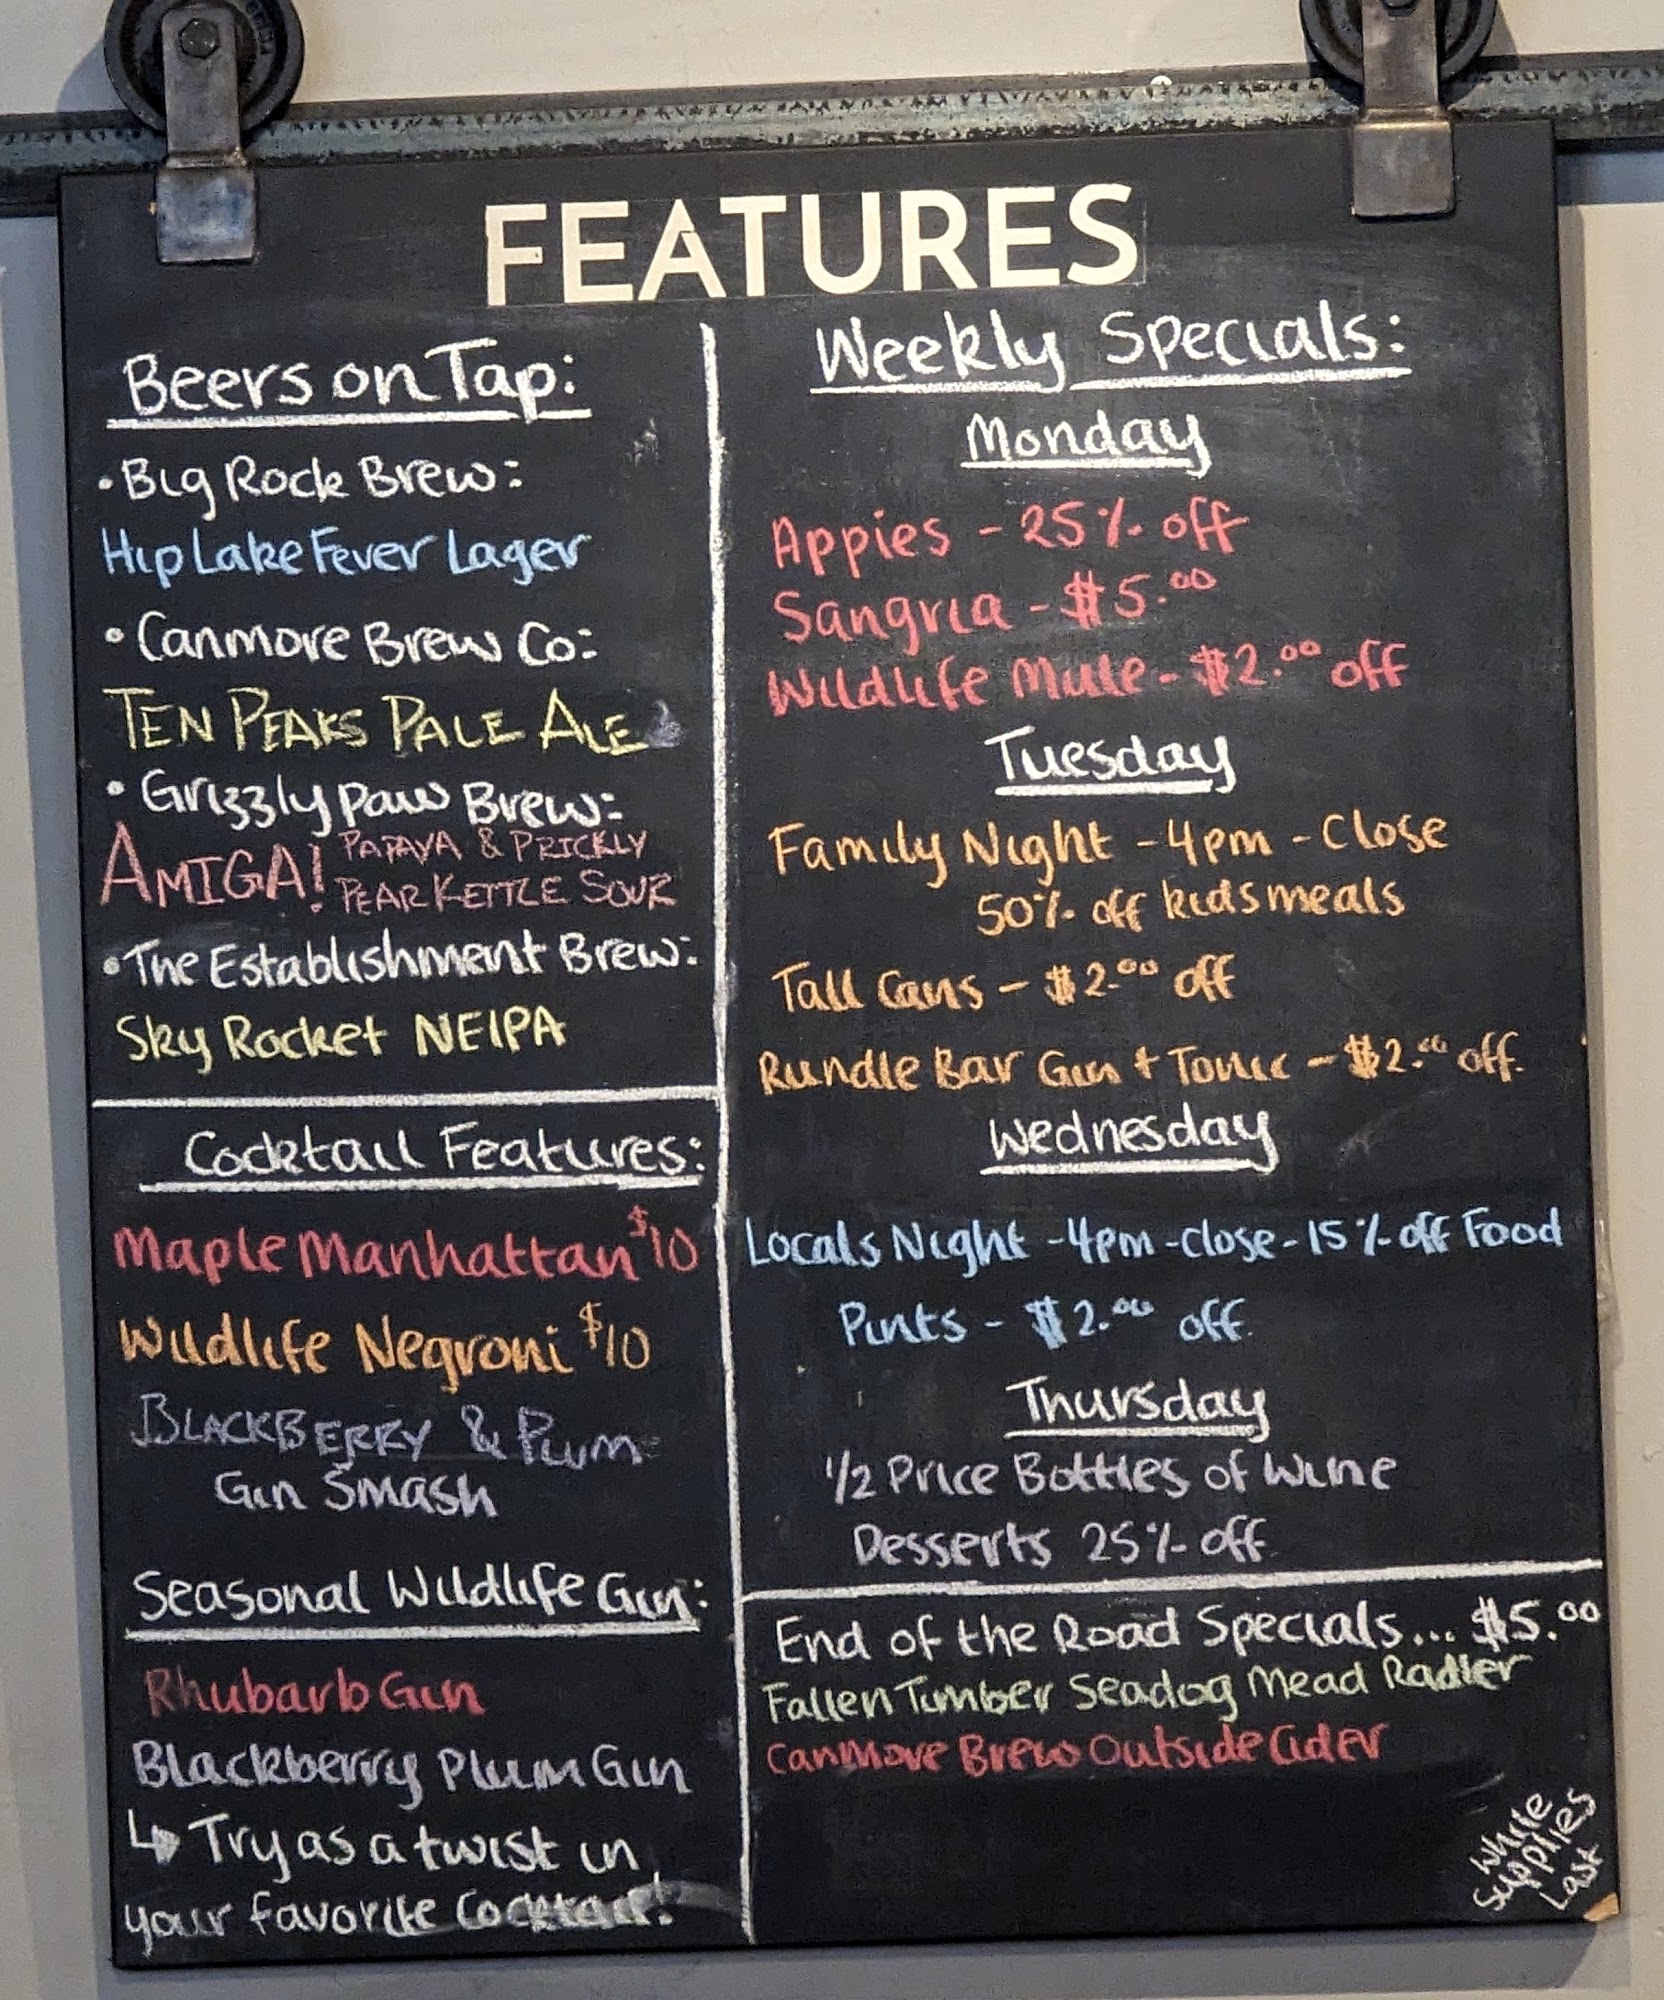 FEATURES
Beers on Tap:
• Big Rock Brew:
Hip Lake Fever Lager
• Canmore Brew Co:
TEN PEAKS PALE ALE
• Grizzly Paw Brew:
AMIGA! PAPAYA & PRICKLY
PEAR KETTLE SOUR
• The Establishment Brew:
Sky Rocket NEIPA
Cocktail Features:
Maple Manhattan $10
Wildlife Negroni $10
BLACKBERRY & Plum
Gin Smash
Seasonal Wildlife Gin:
Rhubarb Gin
Blackberry Plum Gin
↳ Try as a twist in
your favorite Cocktail!
Weekly Specials:
Monday
Appies - 25% off
Sangria - $5.00
Wildlife Mule - $2.00 off
Tuesday
Family Night - 4pm - Close
50% off kids meals
Tall Cans - $2.00 off
Rundle Bar Gin + Tonic - $2.00 off.
Wednesday
Locals Night - 4pm - close - 15% off Food
Pints - $2.00 off.
Thursday
1/2 Price Bottles of Wine
Desserts 25% off
End of the Road Specials... $5.00
Fallen Timber Seadog Mead Radler
Canmore Brew Outside Cider
While
Supplies
Last